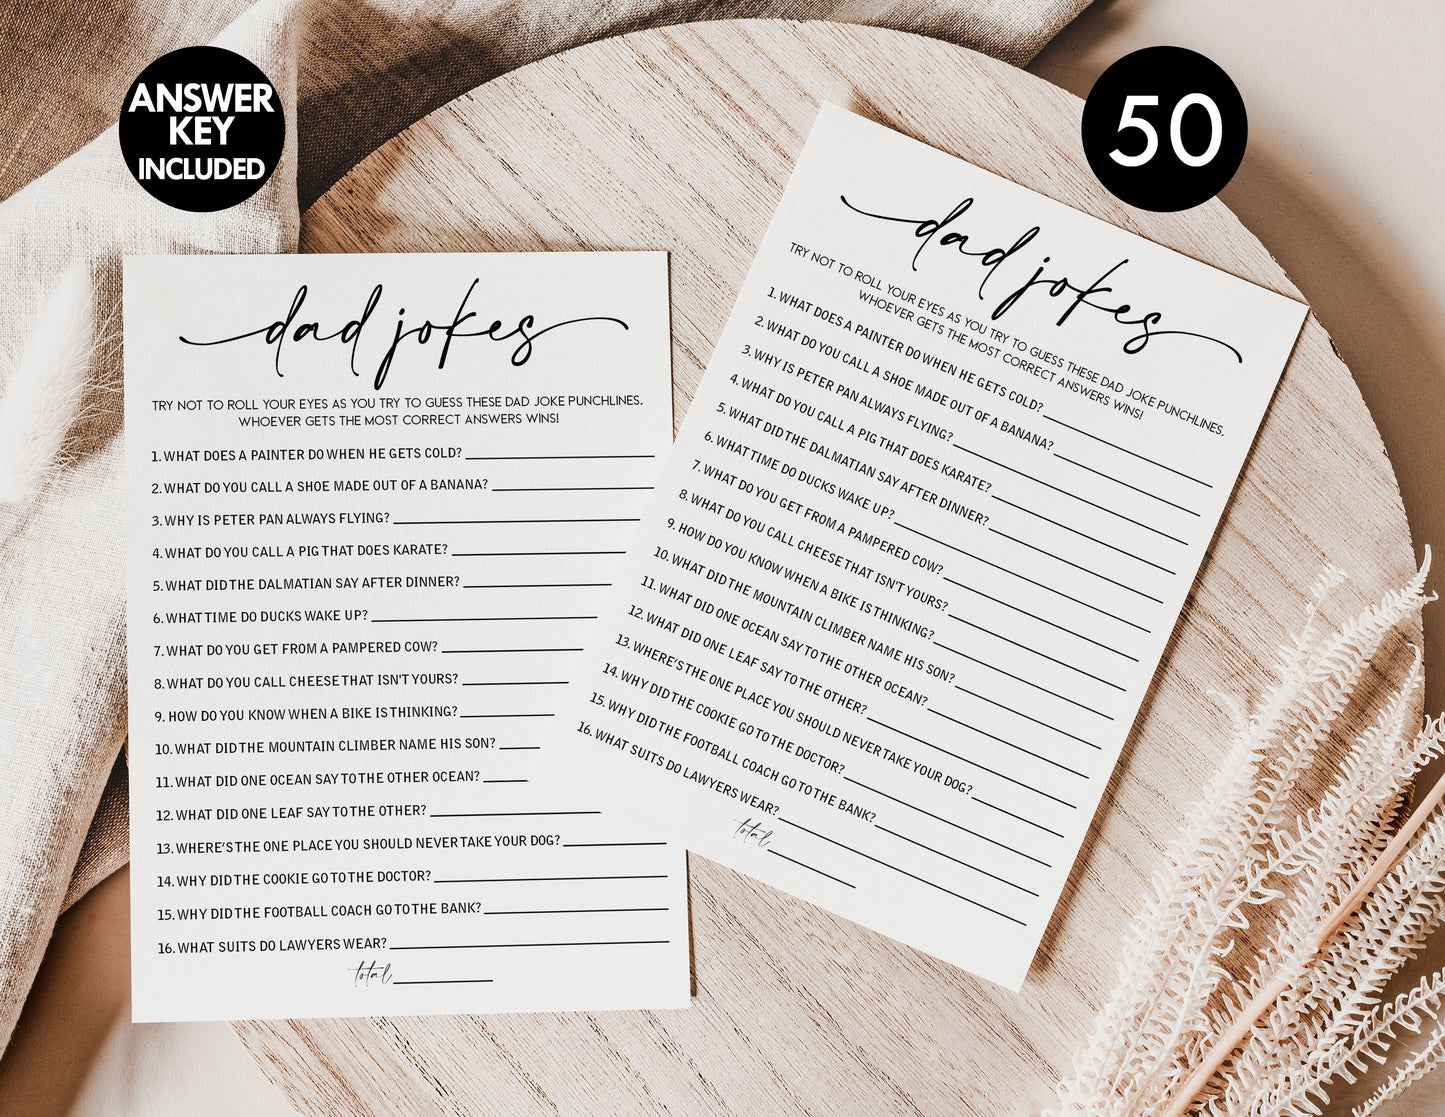 ANSWER
KEY
INCLUDED
50
dad jokes
TRY NOT TO ROLL YOUR EYES AS YOU TRY TO GUESS THESE DAD JOKE PUNCHLINES.
WHOEVER GETS THE MOST CORRECT ANSWERS WINS!
1. WHAT DOES A PAINTER DO WHEN HE GETS COLD?
2. WHAT DO YOU CALL A SHOE MADE OUT OF A BANANA?
3. WHY IS PETER PAN ALWAYS FLYING?
4. WHAT DO YOU CALL A PIG THAT DOES KARATE?
5. WHAT DID THE DALMATIAN SAY AFTER DINNER?
6. WHAT TIME DO DUCKS WAKE UP?
7. WHAT DO YOU GET FROM A PAMPERED COW?
8. WHAT DO YOU CALL CHEESE THAT ISN'T YOURS?
9. HOW DO YOU KNOW WHEN A BIKE IS THINKING?
10. WHAT DID THE MOUNTAIN CLIMBER NAME HIS SON?
11. WHAT DID ONE OCEAN SAY TO THE OTHER OCEAN?
12. WHAT DID ONE LEAF SAY TO THE OTHER?
13. WHERE'S THE ONE PLACE YOU SHOULD NEVER TAKE YOUR DOG?
14. WHY DID THE COOKIE GO TO THE DOCTOR?
15. WHY DID THE FOOTBALL COACH GO TO THE BANK?
16. WHAT SUITS DO LAWYERS WEAR?
total
dad jokes
TRY NOT TO ROLL YOUR EYES AS YOU TRY TO GUESS THESE DAD JOKE PUNCHLINES.
WHOEVER GETS THE MOST CORRECT ANSWERS WINS!
1. WHAT DOES A PAINTER DO WHEN HE GETS COLD?
2. WHAT DO YOU CALL A SHOE MADE OUT OF A BANANA?
3. WHY IS PETER PAN ALWAYS FLYING?
4. WHAT DO YOU CALL A PIG THAT DOES KARATE?
5. WHAT DID THE DALMATIAN SAY AFTER DINNER?
6. WHAT TIME DO DUCKS WAKE UP?
7. WHAT DO YOU GET FROM A PAMPERED COW?
8. WHAT DO YOU CALL CHEESE THAT ISN'T YOURS?
9. HOW DO YOU KNOW WHEN A BIKE IS THINKING?
10. WHAT DID THE MOUNTAIN CLIMBER NAME HIS SON?
11. WHAT DID ONE OCEAN SAY TO THE OTHER OCEAN?
12. WHAT DID ONE LEAF SAY TO THE OTHER?
13. WHERE'S THE ONE PLACE YOU SHOULD NEVER TAKE YOUR DOG?
14. WHY DID THE COOKIE GO TO THE DOCTOR?
15. WHY DID THE FOOTBALL COACH GO TO THE BANK?
16. WHAT SUITS DO LAWYERS WEAR?
total